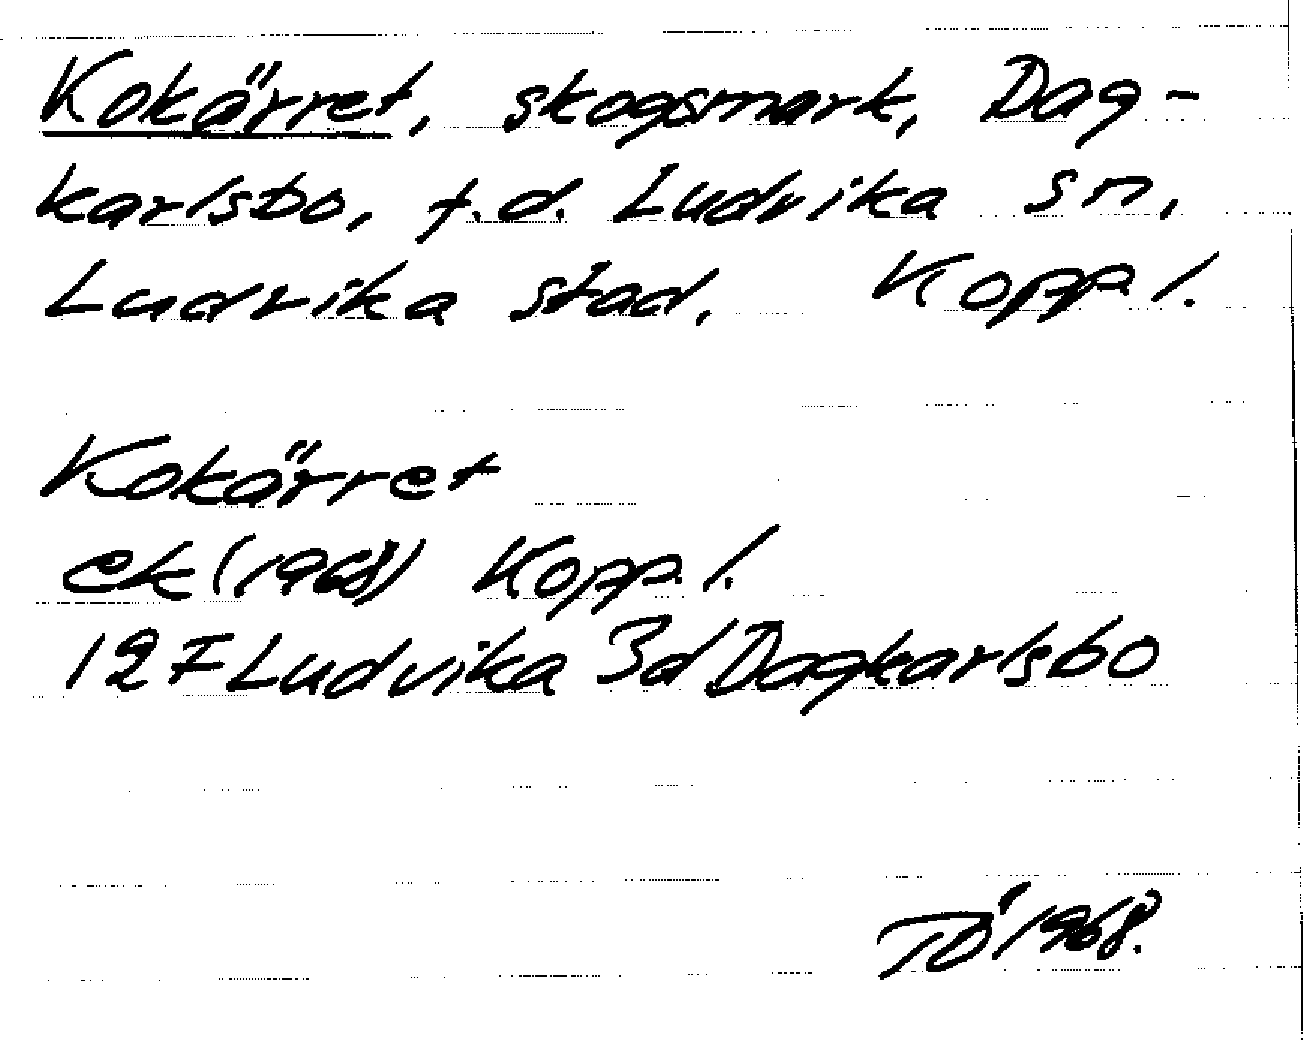 Kokärret, skogsmark, Dag-
karlsbo, f.d. Ludvika sn,
Ludvika stad. Kopp. l.
Kokärret
ek (1968) Kopp. l.
12F Ludvika 3d Dagkarlsbo
TÖ 1968.